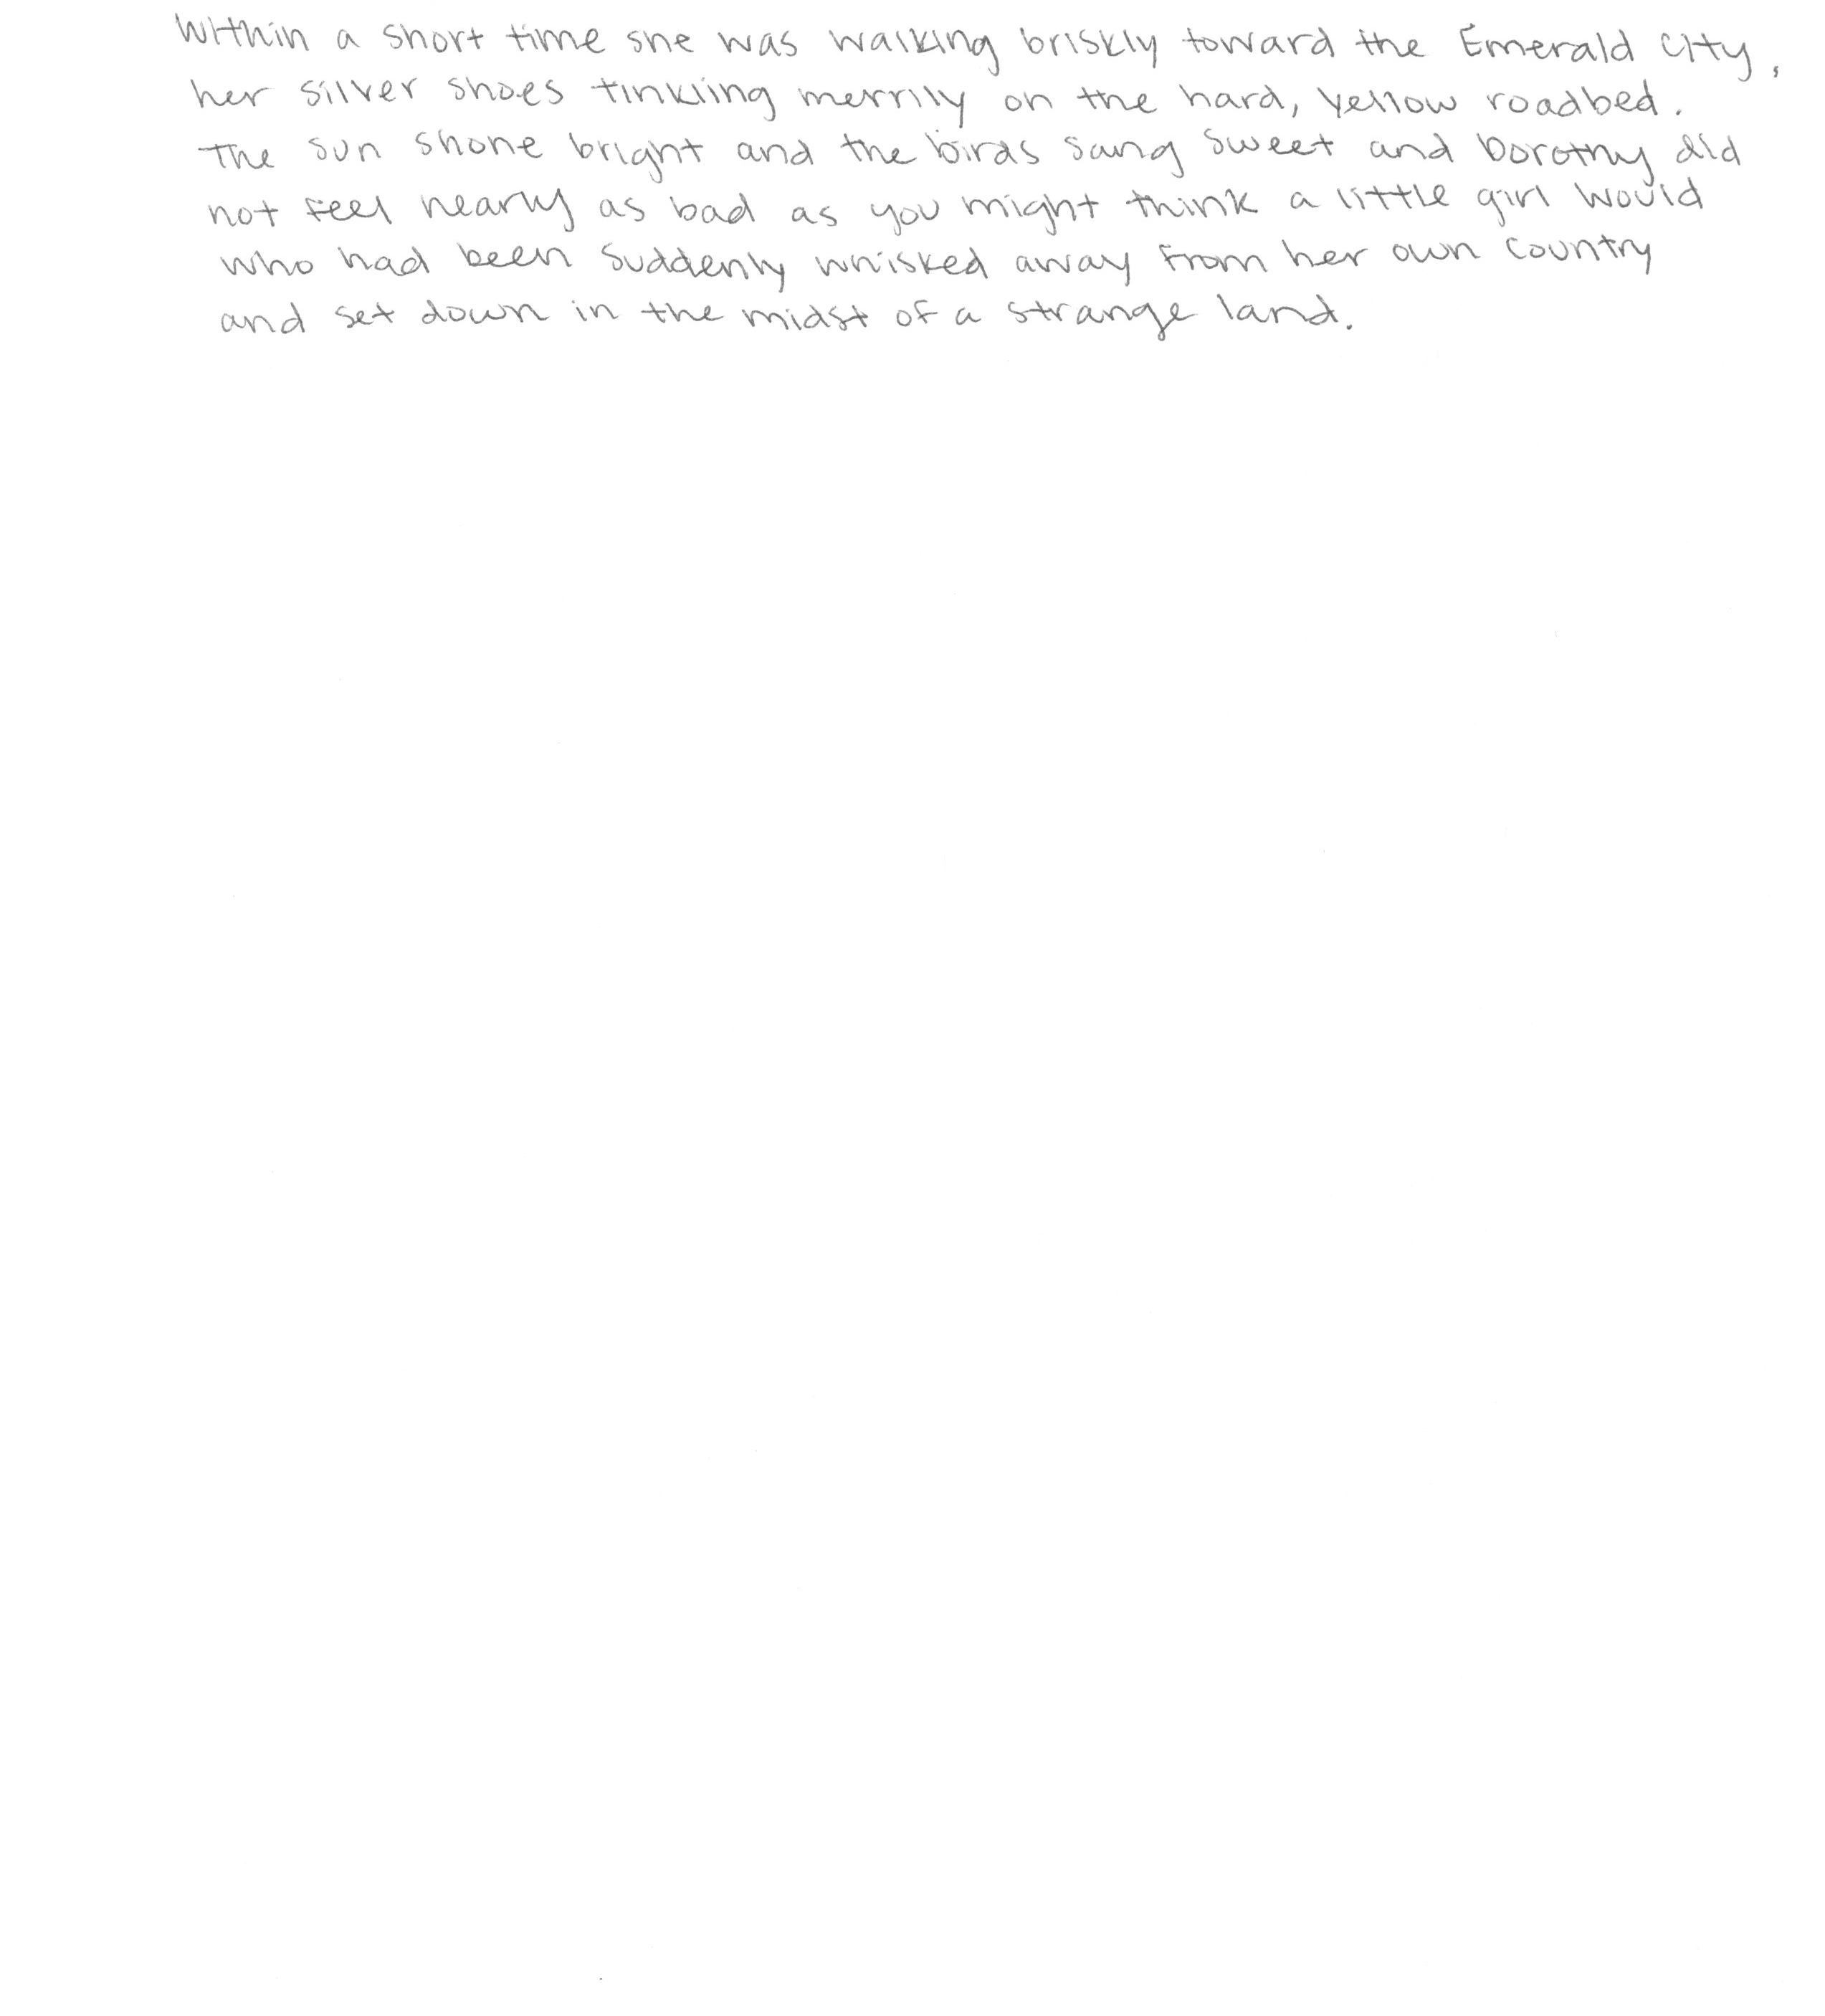 Within a short time she was walking briskly toward the Emerald City,
her silver shoes tinkling merrily on the hard, yellow roadbed.
The sun shone bright and the birds sang sweet and Dorothy did
not feel nearly as bad as you might think a little girl would
who had been suddenly whisked away from her own country
and set down in the midst of a strange land.